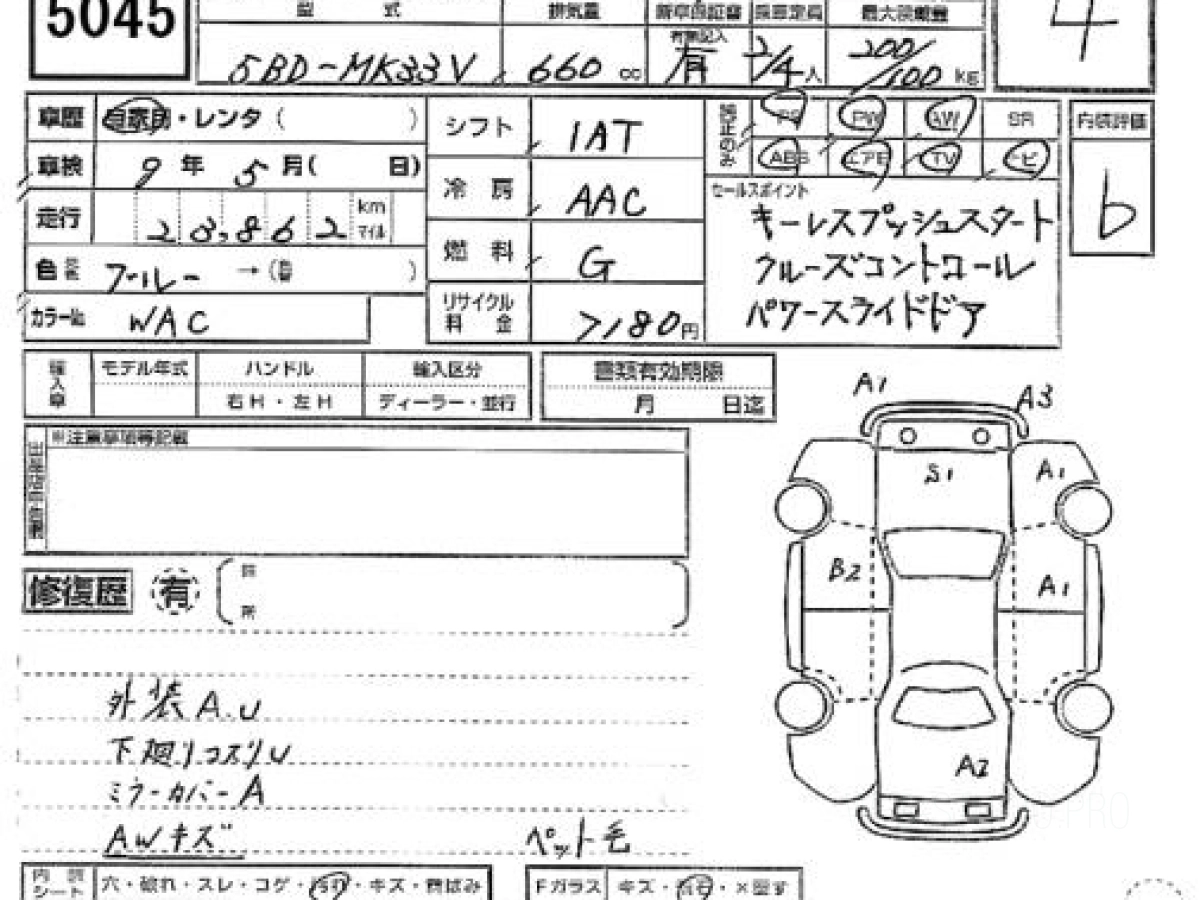 5045
型 式 排気量 新車保証書 乗車定員 最大積載量
有無記入
5BD-MK33V 660 cc 有 2/4人 200/100 kg
4
車歴 自家用・レンタ( )
シフト 1AT
純正のみ PS PW AW SR
ABS エアB TV ナビ
内装評価
b
車検 9年 5月( 日)
冷房 AAC
セールスポイント
キーレスプッシュスタート
クルーズコントロール
パワースライドドア
走行 23,862 km マイル
燃料 G
色 ブルー →( )
カラー№ WAC
リサイクル料金 7180円
輸入車 モデル年式 ハンドル 輸入区分
右H・左H ディーラー・並行
書類有効期限
月 日迄
※注意事項等記載
出品店申告欄
修復歴 有
箇所
A1 A3
S1 A1
B2 A1
A2
外装A.U
下廻りコスリU
ミラーカバーA
AWキズ
ペット毛
内張シート 穴・破れ・スレ・コゲ・汚れ・キズ・黄ばみ
Fガラス キズ・飛石・×出す